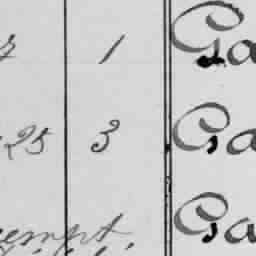 1 Ga
25 3 Ga
empt. Ga